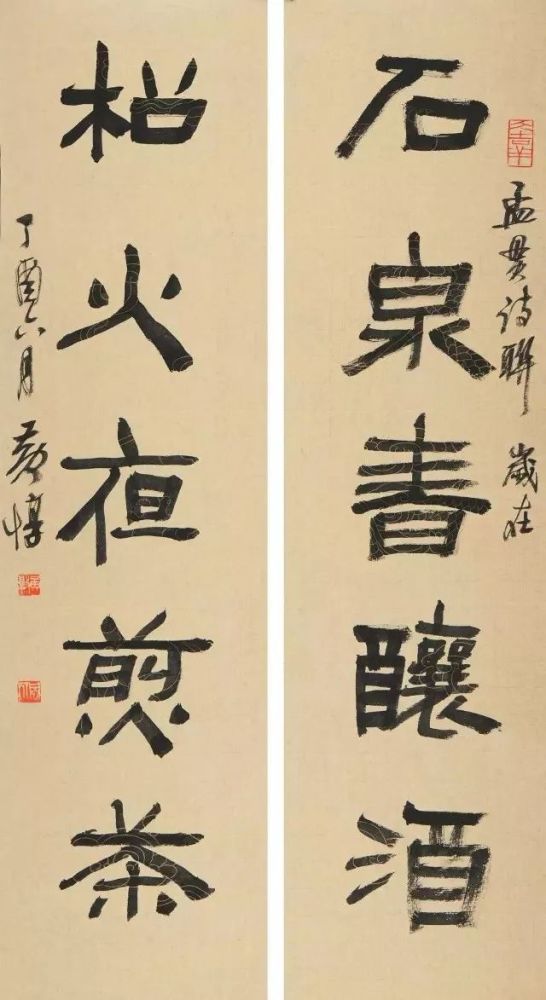 石泉書釀酒
孟貫詩聯 歲在
松火夜煎茶
丁酉六月 黃惇